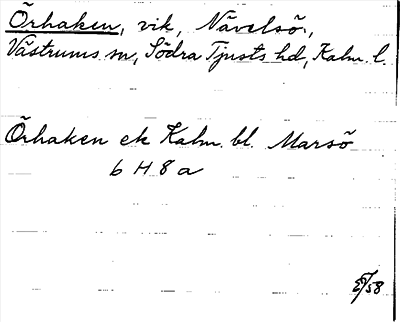 Örhaken, vik, Nävelsö,
Västrums sn, Södra Tjusts hd, Kalm. l.
Örhaken ek Kalm. bl. Marsö
6 H 8 a